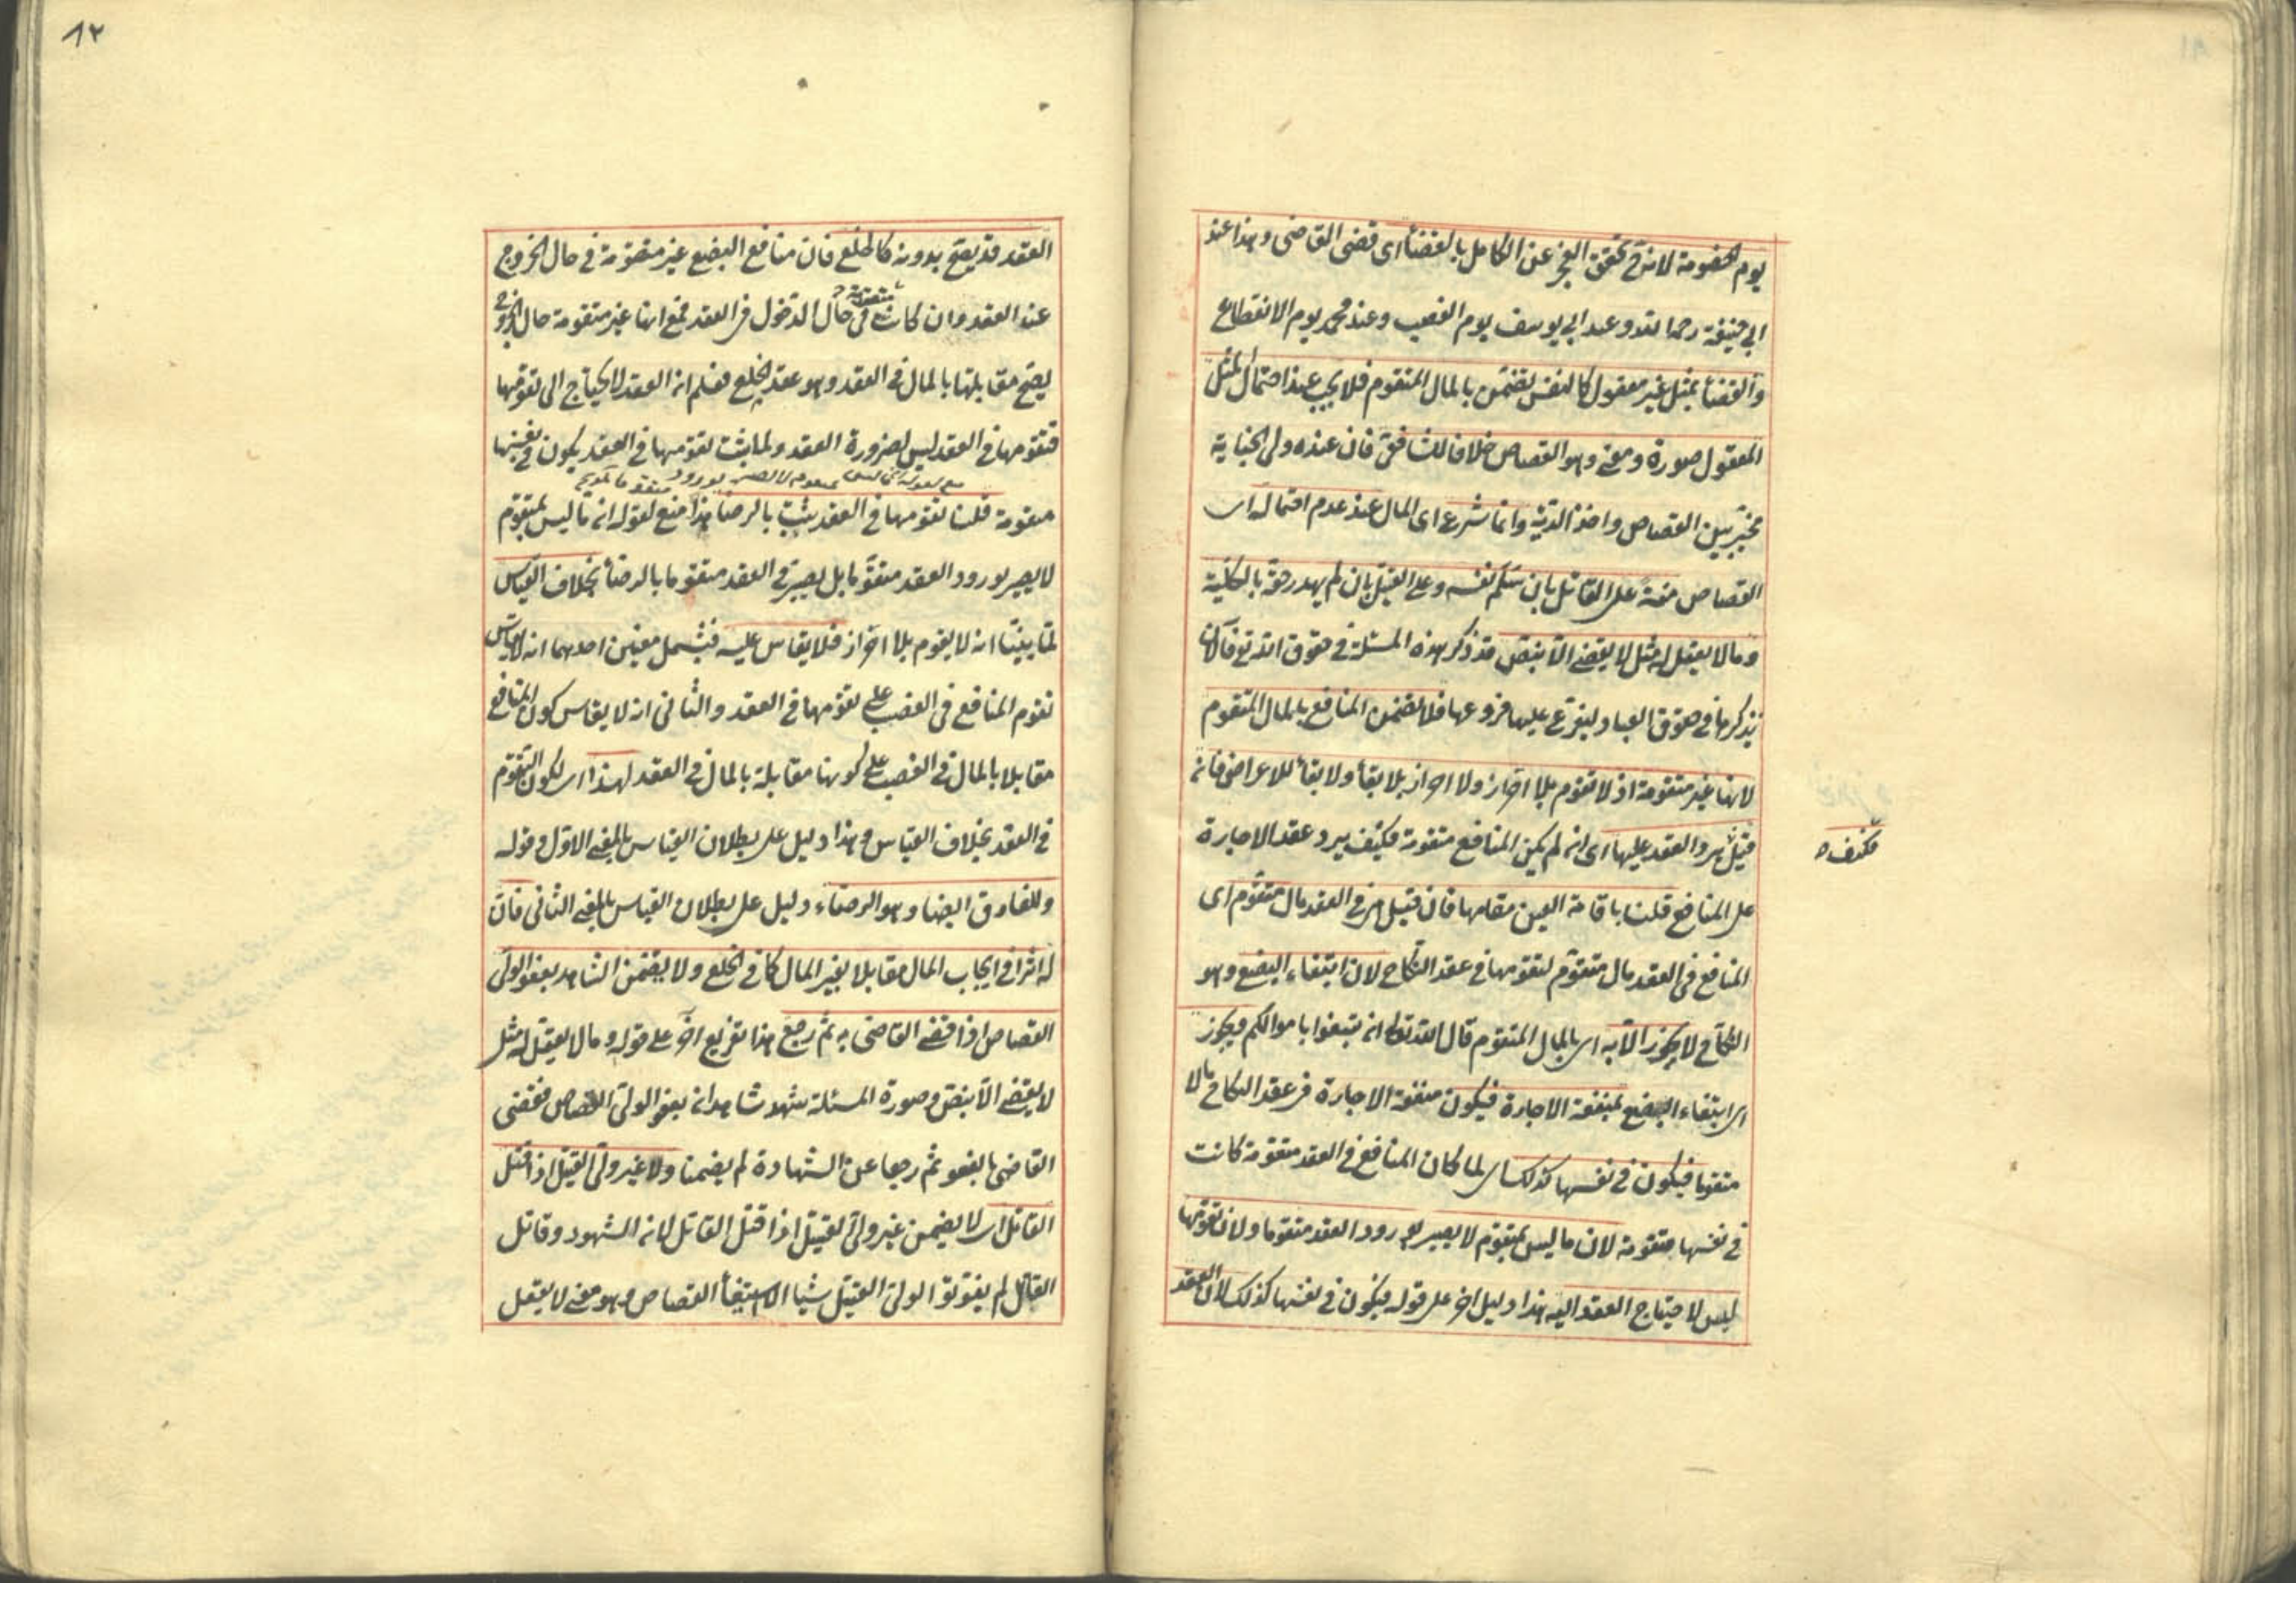 يوم الخصومة لانه ح تحقق العجز عن الكامل بالقضأ اى قضى القاضى وهذا عند
ابى حنيفة رحمه الله وعند ابى يوسف يوم الغصب وعند محمد يوم الانقطاع
والقضأ بمثل غير معقول كالنفس تضمن بالمال المتقوم فلا يجب عند احتمال المثل
المعقول صورة ومعنى وهو القصاص خلافا للشافعى فان عنده ولى الجناية
مخير بين القصاص واخذ الدية وانما شرع اى المال عند عدم احتماله اى
القصاص منة على القاتل بان سلم نفسه وعلى القتيل بان لم يهدر حقه بالكلية
وما لا يعقل له مثل لا يقضى الا بنص قد ذكر هذه المسئلة فى حقوق الله تع فالآن
يذكرها فى حقوق العباد ليفرع عليها فروعها فلا تضمن المنافع بالمال المتقوم
لانها غير متقومة اذ لا تقوم بلا احراز ولا احراز بلا بقأ ولا بقأ للاعراض فان
قيل يرد العقد عليها اى ان لم يكن المنافع متقومة فكيف يرد عقد الاجارة
فكيف
على المنافع قلنا باقامة العين مقامها فان قيل هى فى العقد مال متقوم اى
المنافع فى العقد مال متقوم لتقومها فى عقد النكاح لان ابتغاء البضع وهو
النكاح لا يجوز الا به اى بالمال المتقوم قال الله تعالى ان تبتغوا باموالكم ويجوز
اى ابتغاء البضع بمنفعة الاجارة فيكون منفعة الاجارة فى عقد النكاح مالا
متقوما فيكون فى نفسها كذلك اى لما كان المنافع فى العقد متقومة كانت
فى نفسها متقومة لان ما ليس بمتقوم لا يصير بورود العقد متقوما ولان تقومها
ليس لاحتياج العقد اليه هذا دليل اخر على قوله فيكون فى نفسها كذلك لان العقد
٨٢
العقد قد يصح بدونه كالخلع فان منافع البضع غير متقومة فى حال الخروج
عند العقد وان كانت متقومة فى حال الدخول فى العقد فمع انها غير متقومة حال الخروج
يصح مقابلتها بالمال فى العقد وهو عقد الخلع فعلم ان العقد لا يحتاج الى تقومها
فتقومها فى العقد ليس لضرورة العقد ولما يثبت تقومها فى العقد يكون فى نفسها
متقومة قلنا تقومها فى العقد يثبت بالرضا هذا منع لقوله ان ما ليس بمتقوم
لا يصير بورود العقد متقوما بل يصير فى العقد متقوما بالرضأ بخلاف القياس
لما بينا انه لا يقوم بلا احراز فلا يقاس عليه فيشمل معنين احدهما انه لا يقاس
تقوم المنافع فى الغصب على تقومها فى العقد والثانى انه لا يقاس كون المنافع
مقابلا بالمال فى الغصب على كونها مقابلة بالمال فى العقد لهذا اى لكون التقوم
فى العقد بخلاف القياس وهذا دليل على بطلان القياس بالمعنى الاول وقوله
وللفارق ايضا وهو الرضاء دليل على بطلان القياس بالمعنى الثانى فان
له اثرا فى ايجاب المال مقابلا بغير المال كما فى الخلع ولا يضمن الشاهد بعفو الولى
القصاص اذا قضى القاضى به ثم رجع هذا تفريع اخر على قوله وما لا يعقل له مثل
لا يقضى الا بنص وصورة المسئلة شهد شاهدان بعفو الولى القصاص فقضى
القاضى بالعفو ثم رجعا عن الشهادة لم يضمنا ولا غير ولى القتيل اذا قتل
القاتل اى لا يضمن غير ولى القتيل اذا قتل القاتل لانه الشهود وقاتل
القاتل لم يفوتوا الولى القتيل شيا الا استيفأ القصاص وهو معنى لا يعقل